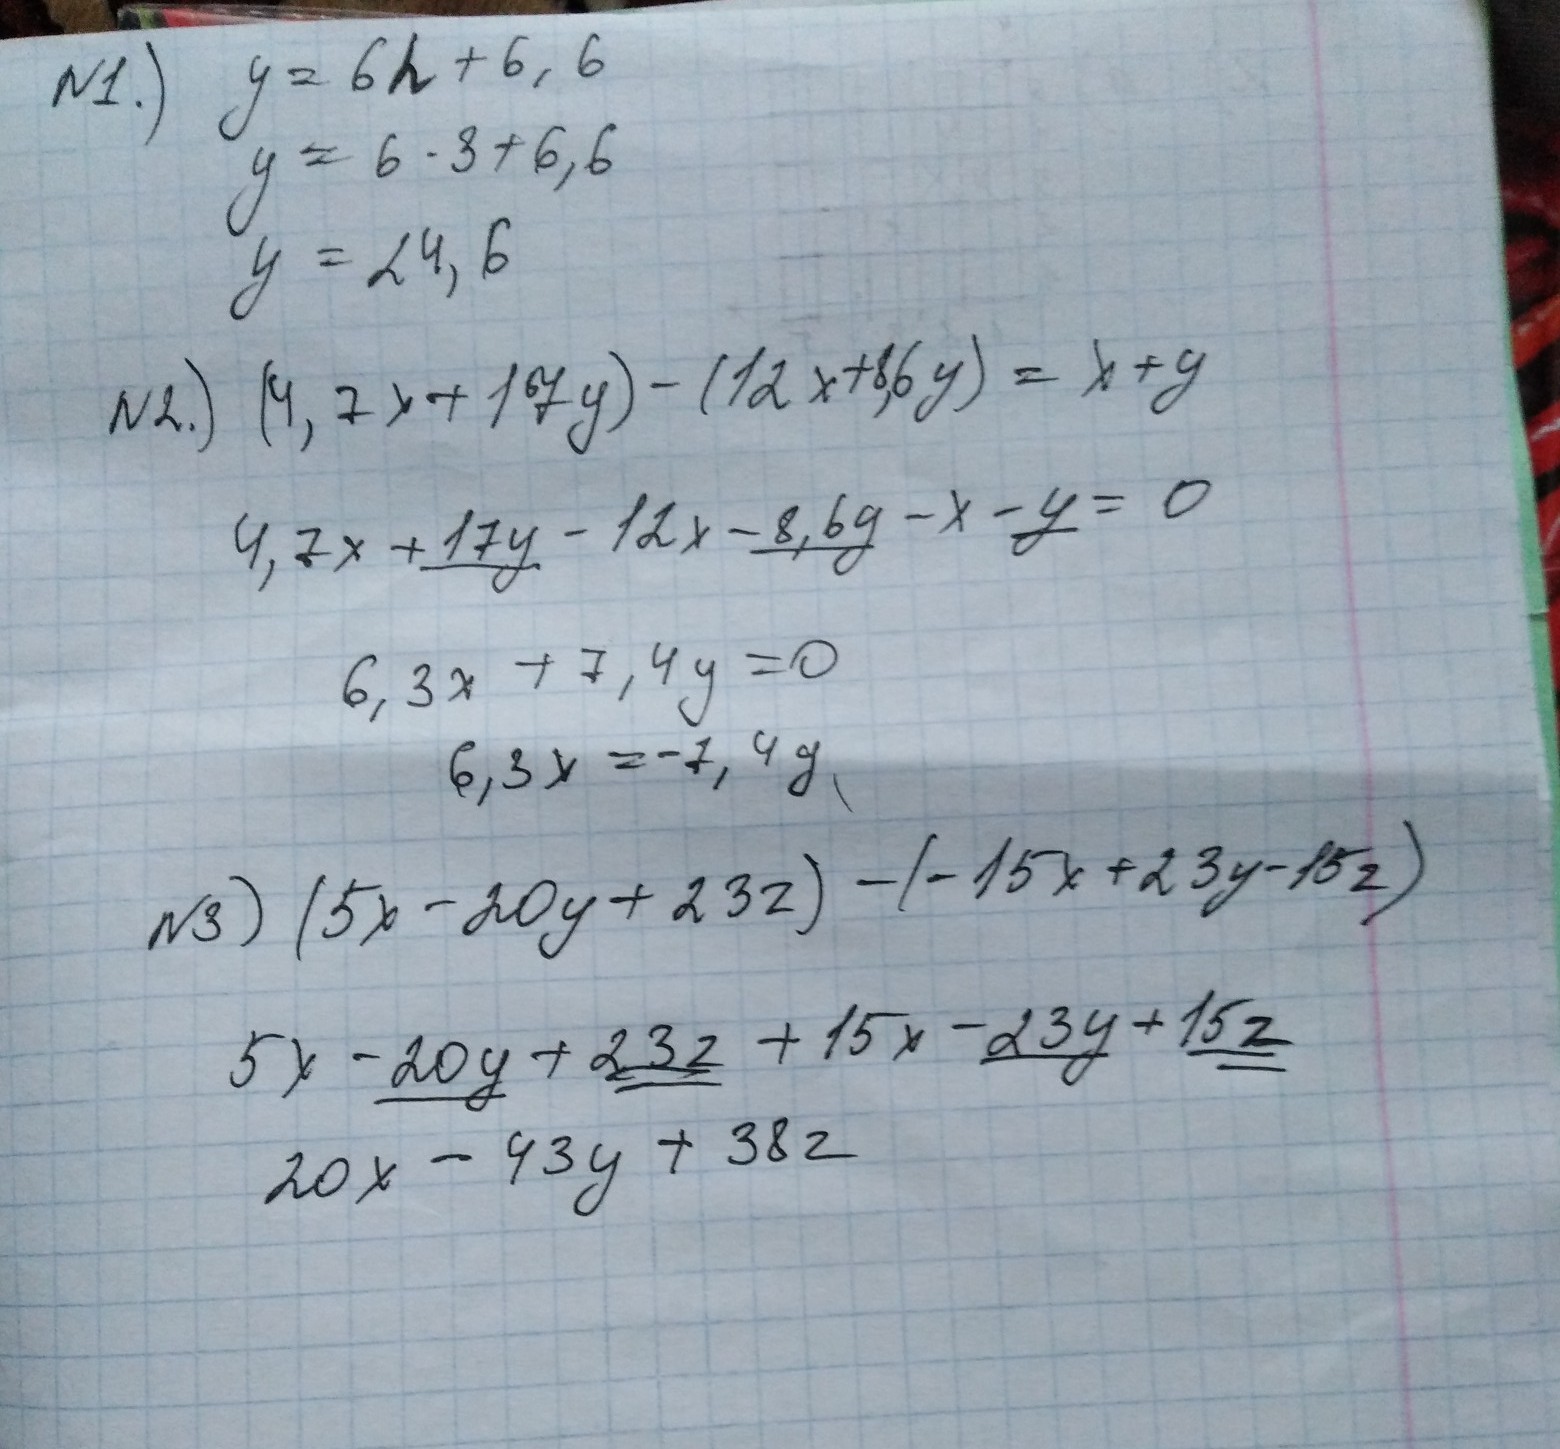 N1.) y = 6h + 6,6
y = 6 · 3 + 6,6
y = 24,6
N2.) (4,7x + 17y) - (12x + 8,6y) = x + y
4,7x + 17y - 12x - 8,6y - x - y = 0
6,3x + 7,4y = 0
6,3x = -7,4y
N3) (5x - 20y + 23z) - (-15x + 23y - 15z)
5x - 20y + 23z + 15x - 23y + 15z
20x - 43y + 38z